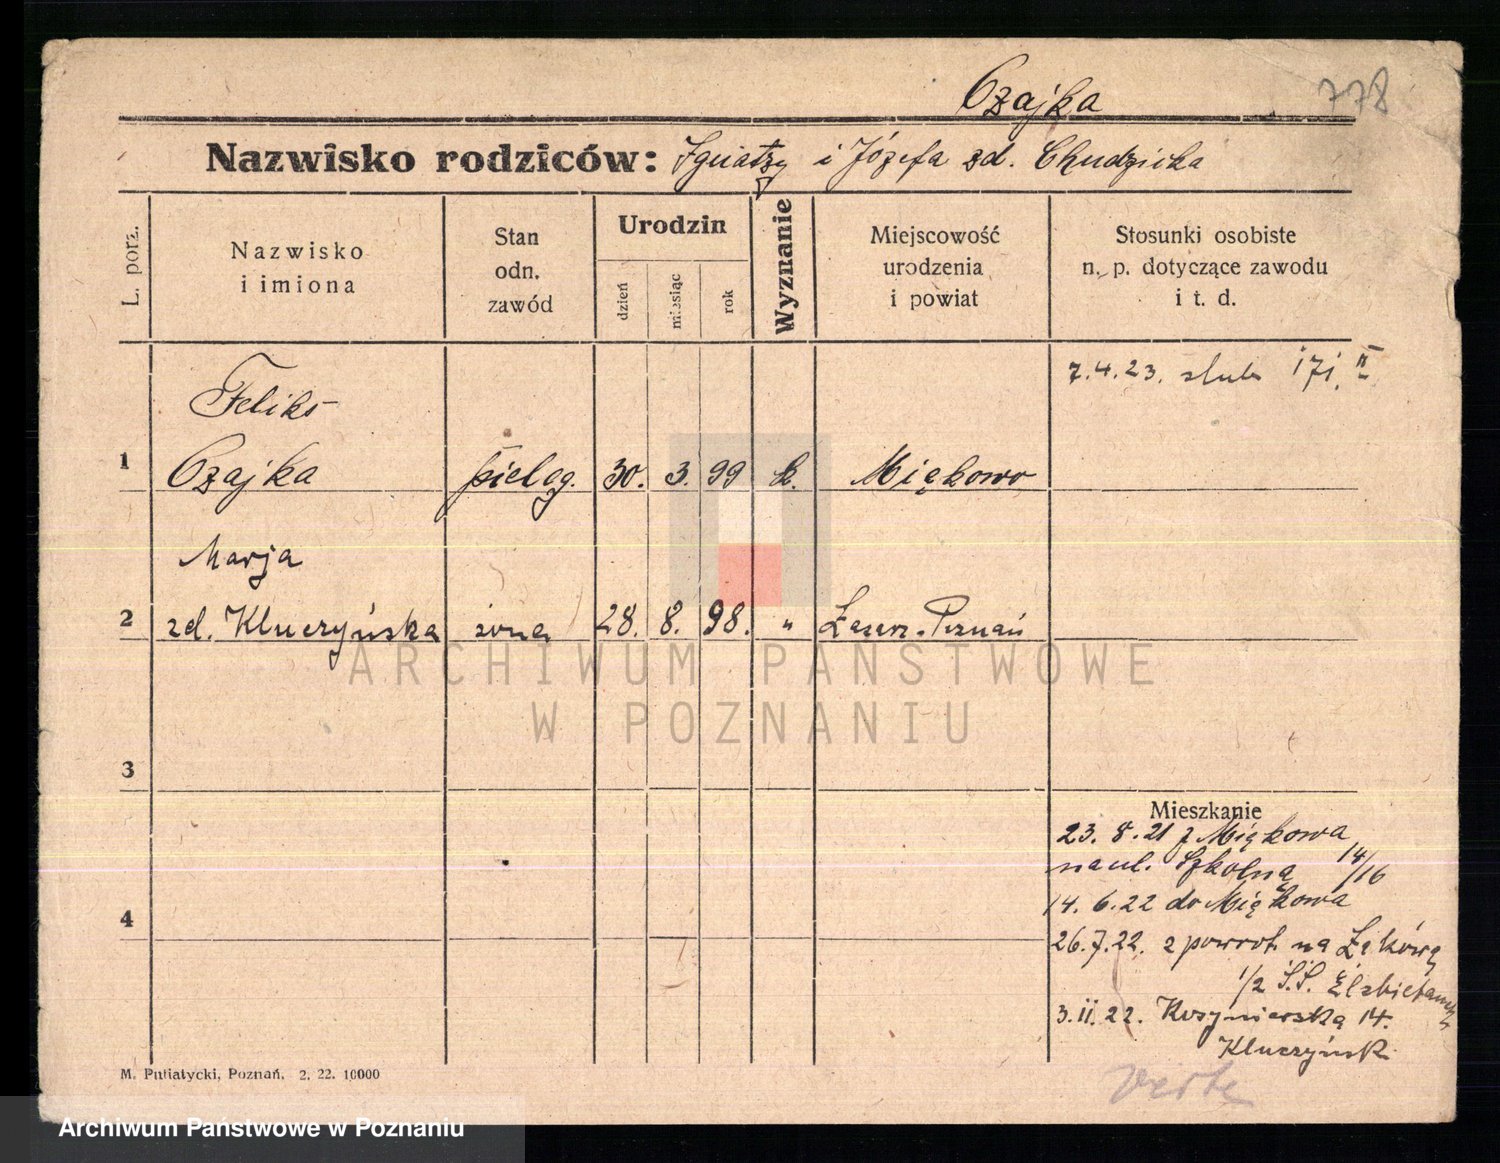 Czajka
778
Nazwisko rodziców: Ignatzy i Józefa zd. Chudzicka
L. porz.
Nazwisko
i imiona
Stan
odn.
zawód
Urodzin
dzień
miesiąc
rok
Wyznanie
Miejscowość
urodzenia
i powiat
Stosunki osobiste
n. p. dotyczące zawodu
i t. d.
7.4.23. ślub 171. II
Feliks
1 Czajka pielęg. 30. 3. 99 k. Miękowo
Marja
2 zd. Kluczyńska żona 28. 8. 98. " Łazarz-Poznań
ARCHIWUM PAŃSTWOWE
W POZNANIU
3
Mieszkanie
23. 8. 21 z Miękowa
na ul. Szkolną 14/16
4
14. 6. 22 do Miękowa
26.7.22. z powrot. na Łąkową
1/2 S.S. Elżbietanek
3.11.22. Kosynierska 14.
Kluczyńsk.
verte
M. Putiatycki, Poznań. 2. 22. 10000
Archiwum Państwowe w Poznaniu